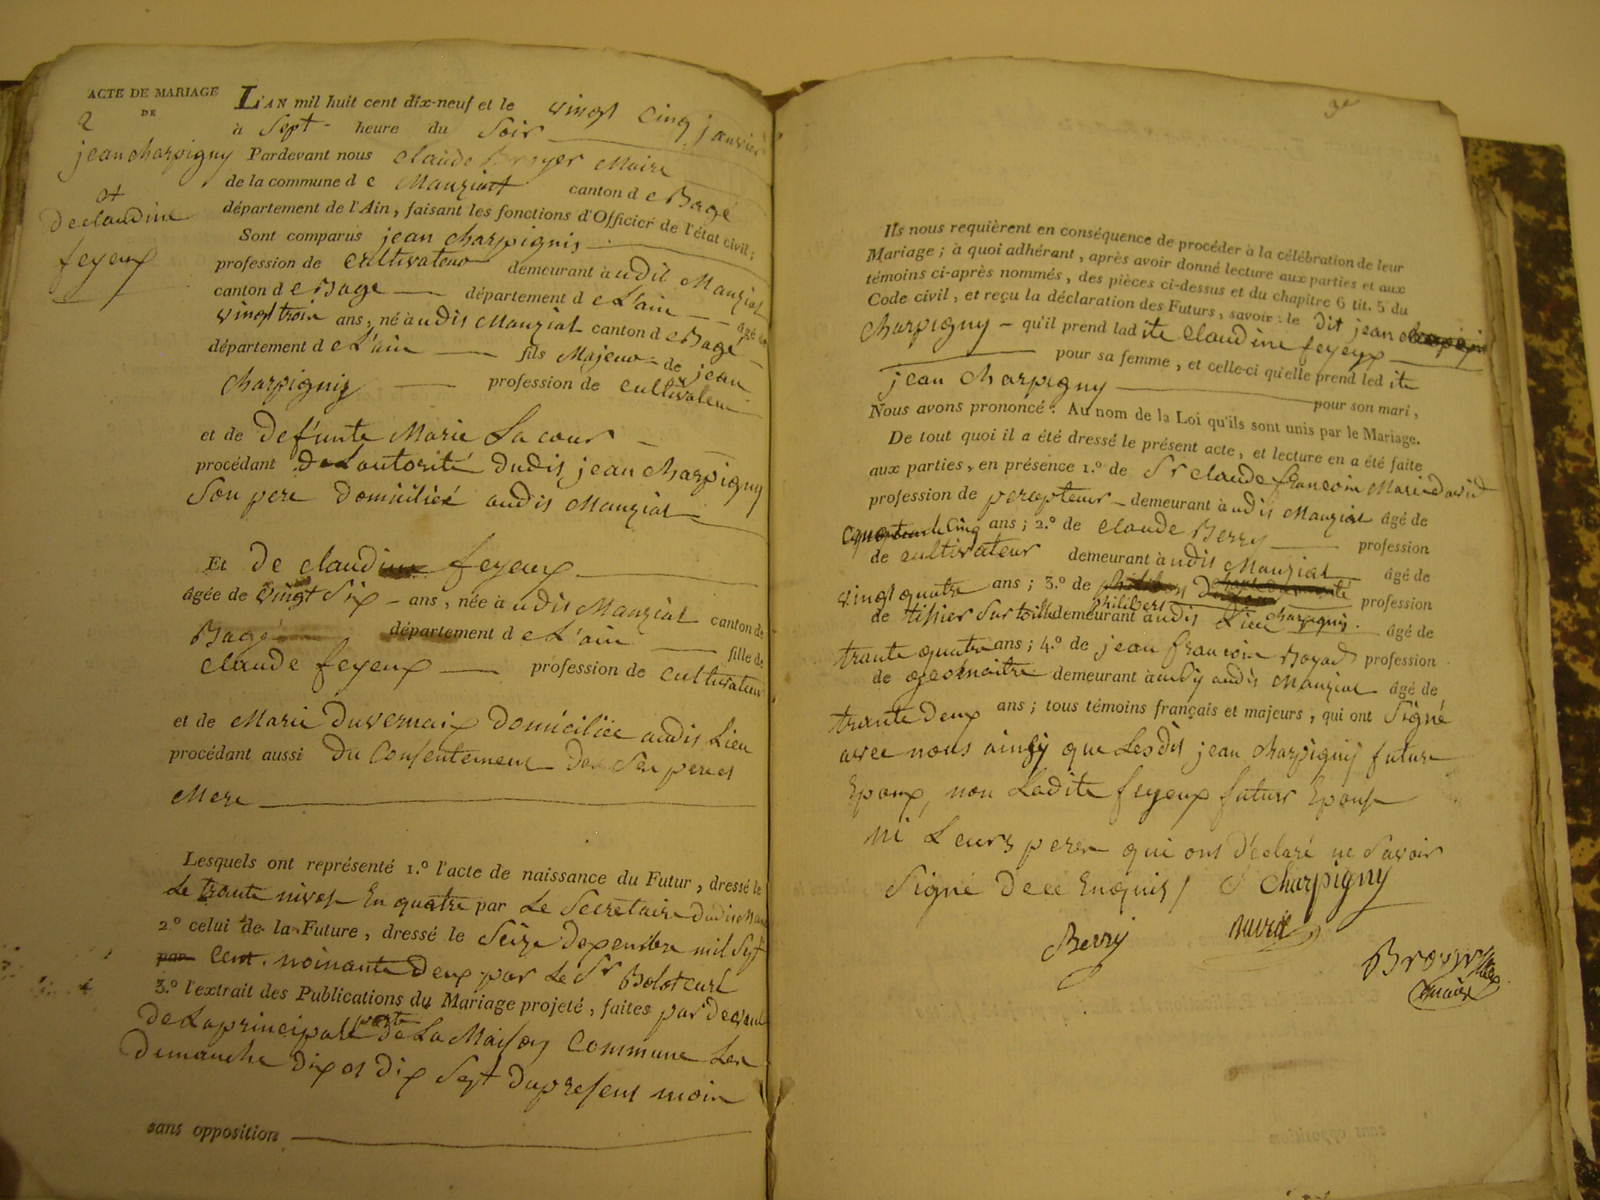 ACTE DE MARIAGE
DE
2
jean charpigny
et
de claudine
feyeux
L'AN mil huit cent dix-neuf et le vingt cinq janvier
à Sept heure du Soir
Pardevant nous claude Broyer Maire
de la commune d e Manziat canton d e Bagé
département de l'Ain, faisant les fonctions d'Officier de l'état civil;
Sont comparus jean charpignis
profession de cultivateur demeurant à udit Manziat
canton d e Bage département d e L'ain âgé de
vingt trois ans, né à udis Manziat canton d e Bagé
département d e L'ain fils Majeur de jean
charpigniy profession de cultivateur
et de defunte Marie Lacour
procédant de Lautorité dudis jean charpigny
Son pere domicilié audis Manziat
Et de claudine feyeux
âgée de vingt Six ans, née à udis Manziat canton de
Bagé département d e L'ain fille de
claude feyeux profession de cultivateur
et de Marie duvernai domiciliée audis Lieu
procédant aussi du Consentement de Ses pere et
Mere
Lesquels ont représenté 1.º l'acte de naissance du Futur, dressé le
Le trante nivos En quatre par Le Secretaire dudis Man
2.º celui de la Future, dressé le Seize decembre mil Sept
par Cent noinante deux par Le Sr
3.º l'extrait des Publications du Mariage projeté, faites par devant
de La principale porte de La Maison Commune Les
dimanche dix et dix Sept du present mois
sans opposition
3e
Ils nous requièrent en conséquence de procéder à la célébration de leur
Mariage; à quoi adhérant, après avoir donné lecture aux parties et aux
témoins ci-après nommés, des pièces ci-dessus et du chapitre 6 tit. 5 du
Code civil, et reçu la déclaration des Futurs, savoir: le dit jean
charpigny qu'il prend lad ite claudine feyeux
pour sa femme, et celle-ci qu'elle prend led ite
jean charpigny pour son mari,
Nous avons prononcé: Au nom de la Loi qu'ils sont unis par le Mariage.
De tout quoi il a été dressé le présent acte, et lecture en a été faite
aux parties, en présence 1.º de Sr claude francois Marie david
profession de percepteur demeurant à udis Manziat âgé de
cinq ans; 2.º de claude Berry profession
de cultivateur demeurant à udis Manziat âgé de
vingt quatre ans; 3.º de philibert charpigny profession
de tissier Sur toille demeurant audis Lieu âgé de
trante quatre ans; 4.º de jean francois Boyad profession
de demeurant à audis Manziat âgé de
trante deux ans; tous témoins français et majeurs, qui ont Signé
avec nous ainsy que Lesdis jean charpigniy future
Epoux, non Ladite feyeux futur Epouse
ni Leurs peres qui ont déclaré ne Savoir
Signé de ce Enquis / charpigny
Berry david Broyer
maire
sans opposition